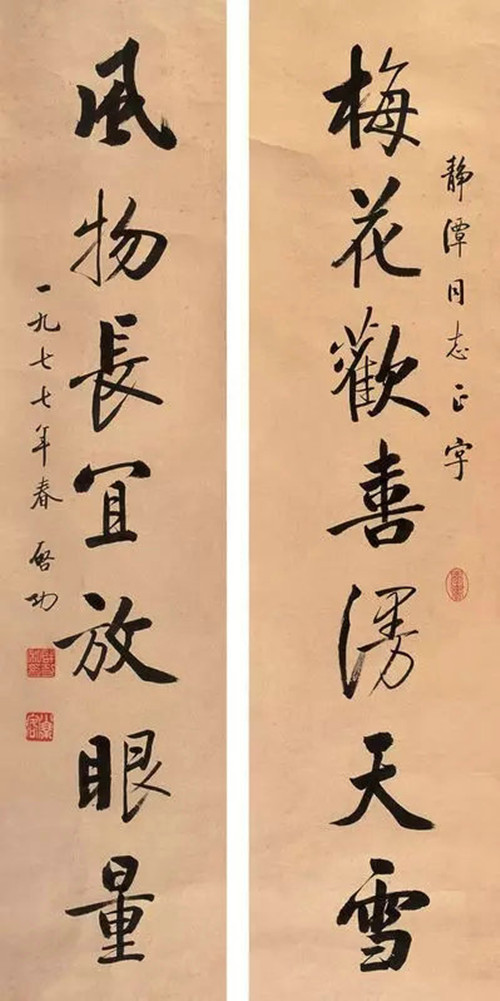 梅花歡喜漫天雪
靜潭同志正字
風物長宜放眼量
一九七七年春 啓功